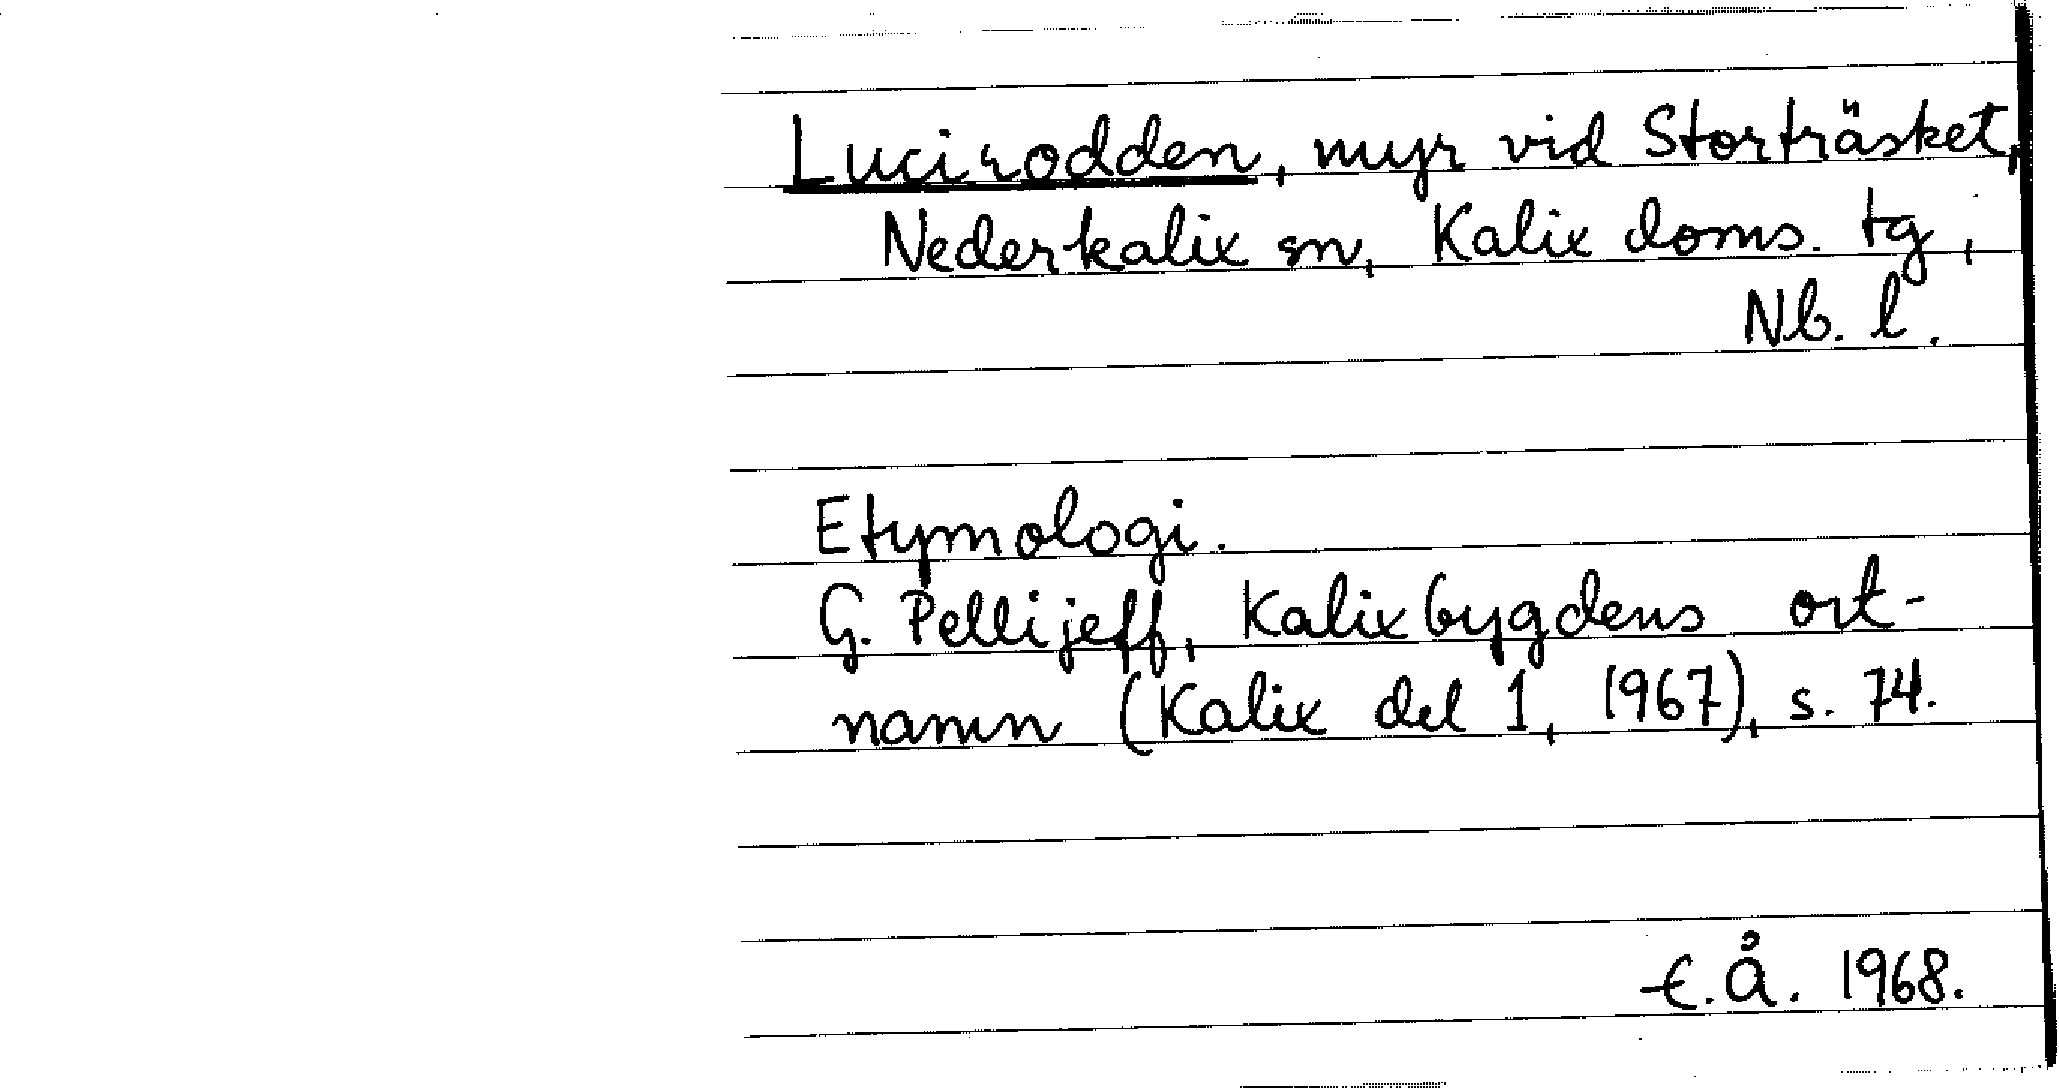 Lucirodden, myr vid Storträsket,
Nederkalix sn, Kalix doms. tg,
Nb. l.
Etymologi.
G. Pellijeff, Kalixbygdens ort-
namn (Kalix del 1, 1967), s. 74.
E.Å. 1968.